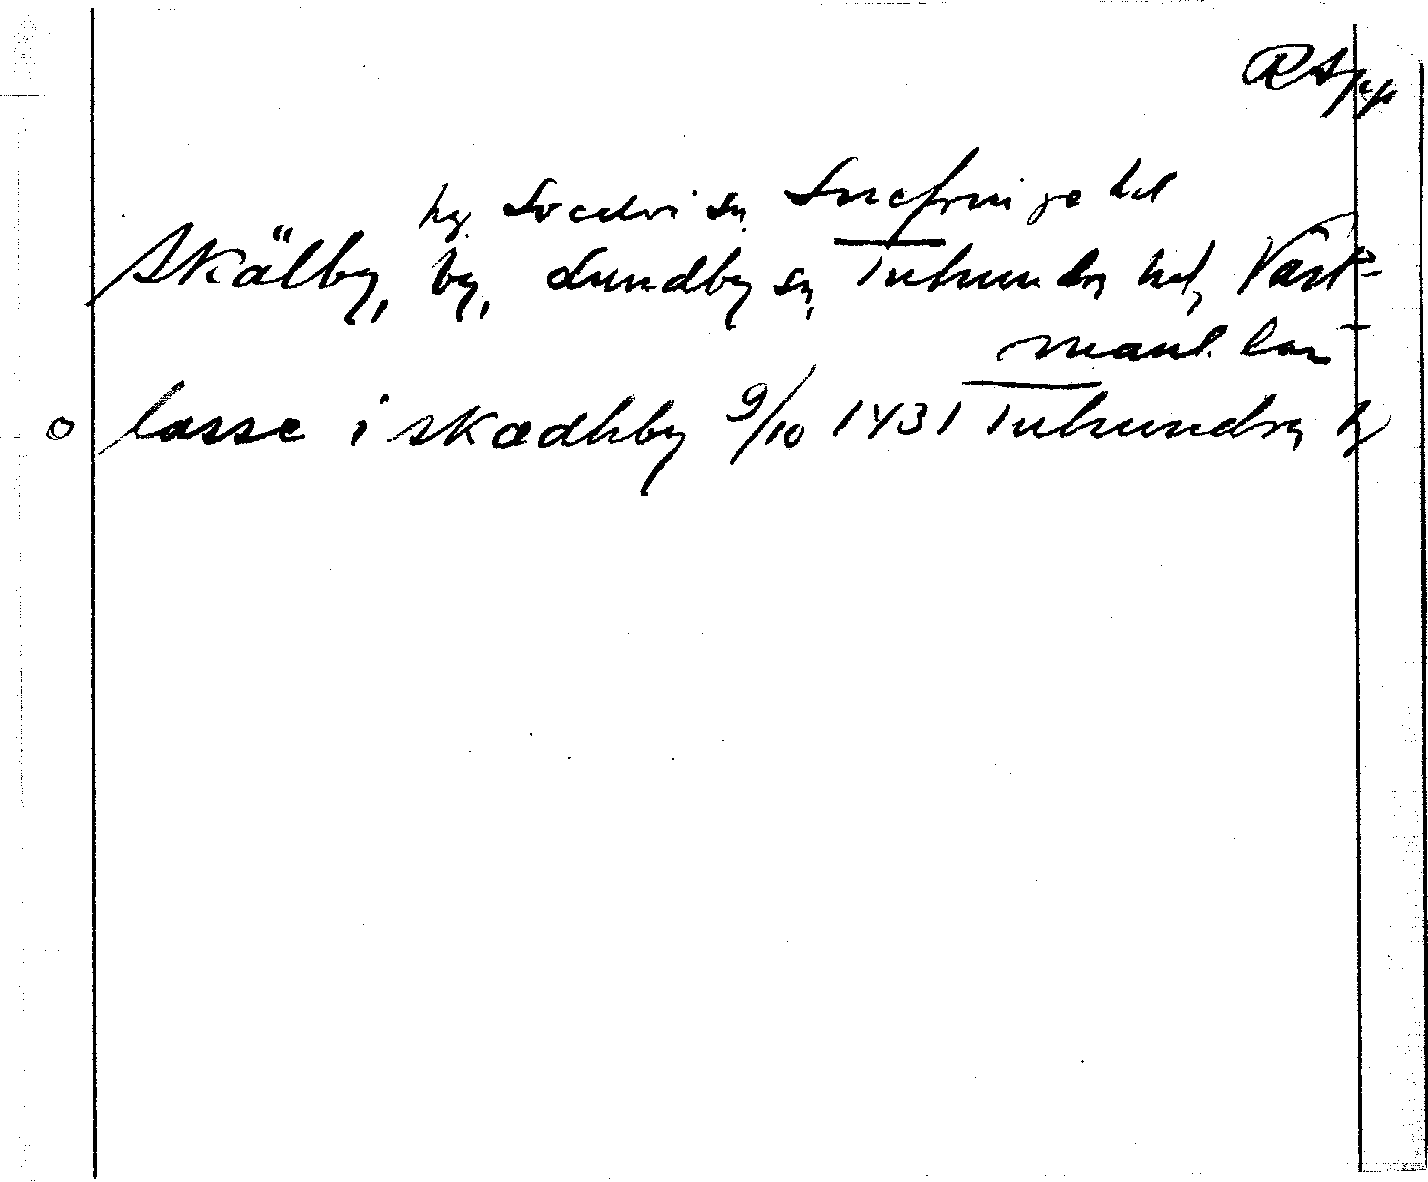 RApp
ng. Svedvi sn, Snefringe hd
Skälby, by, Lundby sn, Tuhundra hd, Väst-
manl. län
lasse i skædhby 9/10 1431 Tuhundra h